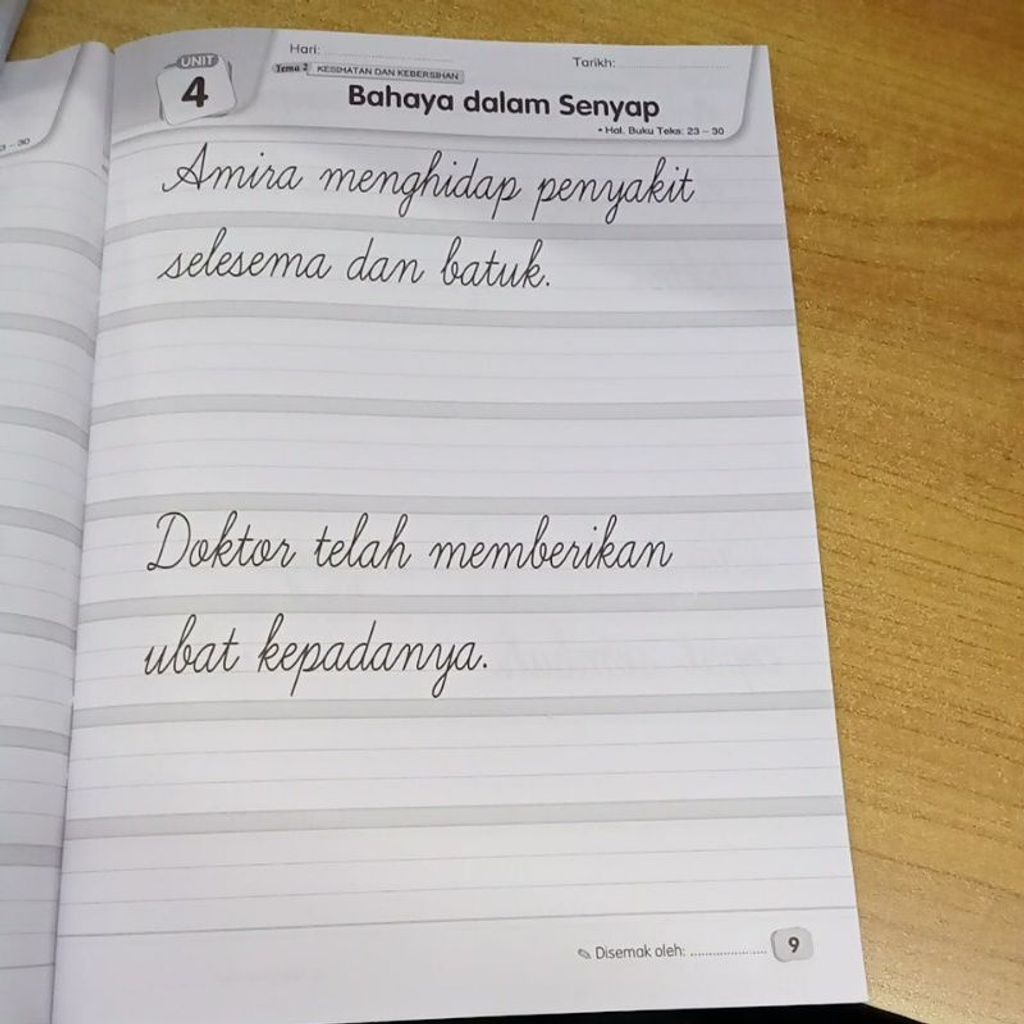 Hari:
Tarikh:
UNIT
4
Tema 2 KESIHATAN DAN KEBERSIHAN
Bahaya dalam Senyap
• Hal. Buku Teks: 23 – 30
Amira menghidap penyakit
selesema dan batuk.
Doktor telah memberikan
ubat kepadanya.
Disemak oleh:
9